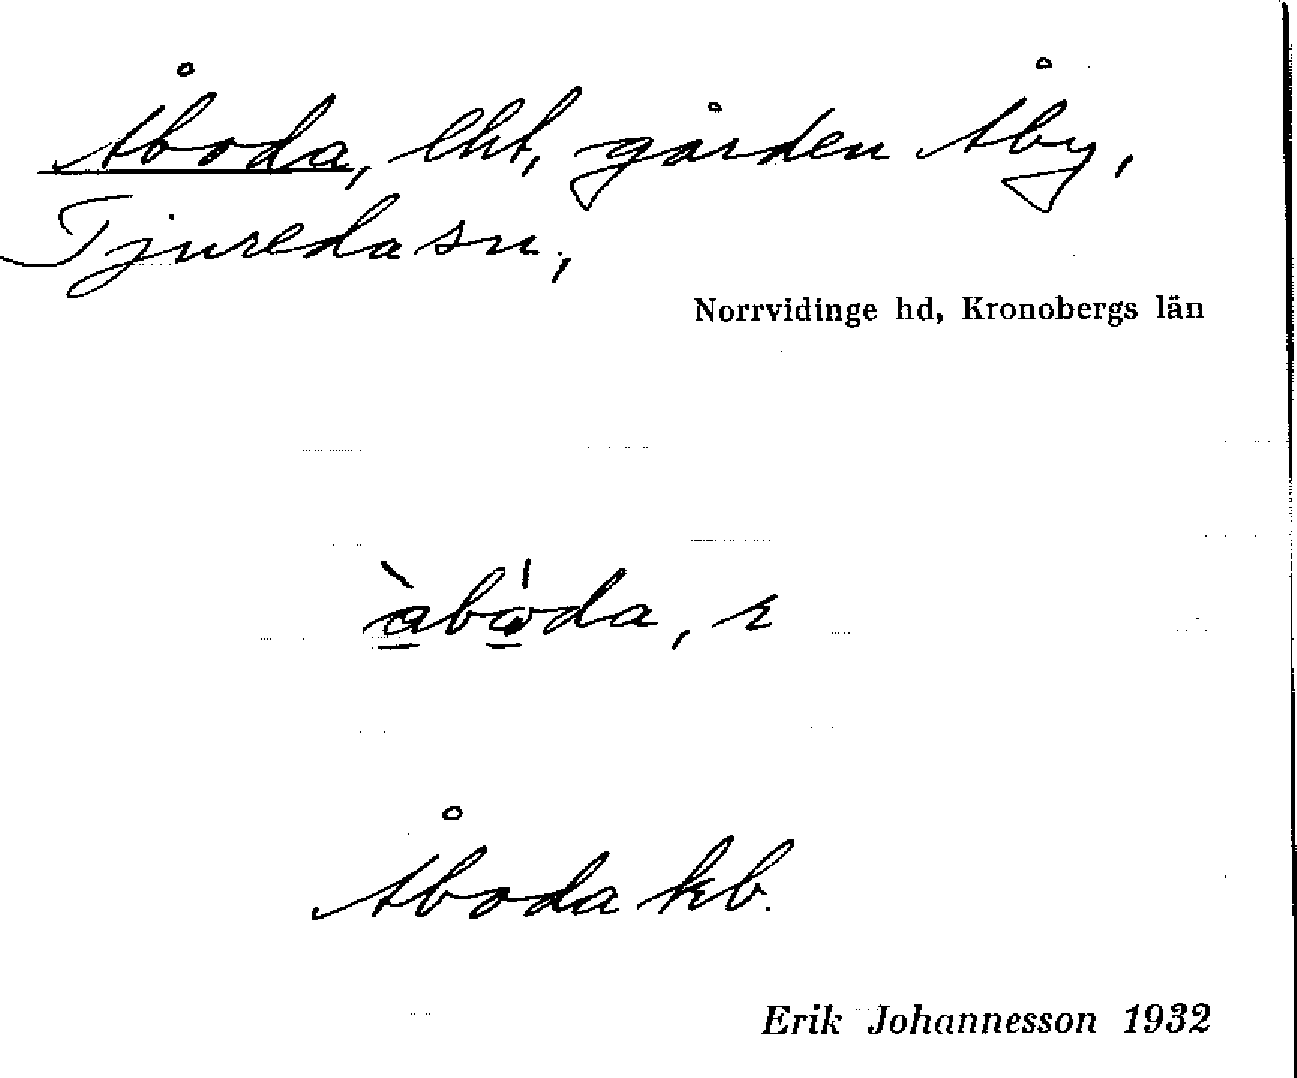 Åboda, lht, gården Åby,
Tjureda sn,
Norrvidinge hd, Kronobergs län
Åboda kb.
Erik Johannesson 1932